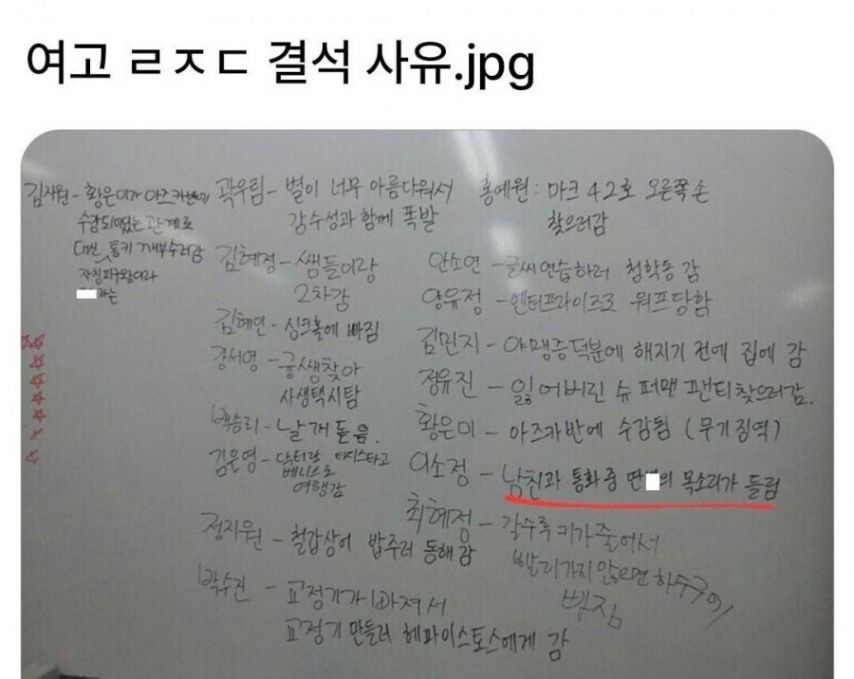 여고 ㄹㅈㄷ 결석 사유.jpg
김지원 - 황은미가 아즈카반에
수감되었는 관계로
대신 통키 깨부수러감
자칭 피구왕이라
라는
곽우림 - 별이 너무 아름다워서
감수성과 함께 폭발
김혜정 - 쌤들이랑
2차감
김혜연 - 싱크홀에 빠짐
강서영 - 궁쌤찾아
사생택시탐
백승리 - 날개 돋음.
김은영 - 닥터랑 타디스타고
베니스로
여행감
정지원 - 철갑상어 밥주러 동해 감
박수진 - 교정기가 빠져서
교정기 만들러 헤파이스토스에게 감
홍예원 : 마크 42호 오른쪽 손
찾으러감
안소연 - 글씨연습하러 청학동 감
양유정 - 엔터프라이즈로 워프당함
김민지 - 야맹증덕분에 해지기 전에 집에 감
정유진 - 잃어버린 슈퍼맨 팬티찾으러감.
황은미 - 아즈카반에 수감됨 (무기징역)
이소정 - 남친과 통화중 딴 의 목소리가 들림
최혜정 - 갈수록 키가 줄어서
빨리가지 않으면 하수구에
빠짐